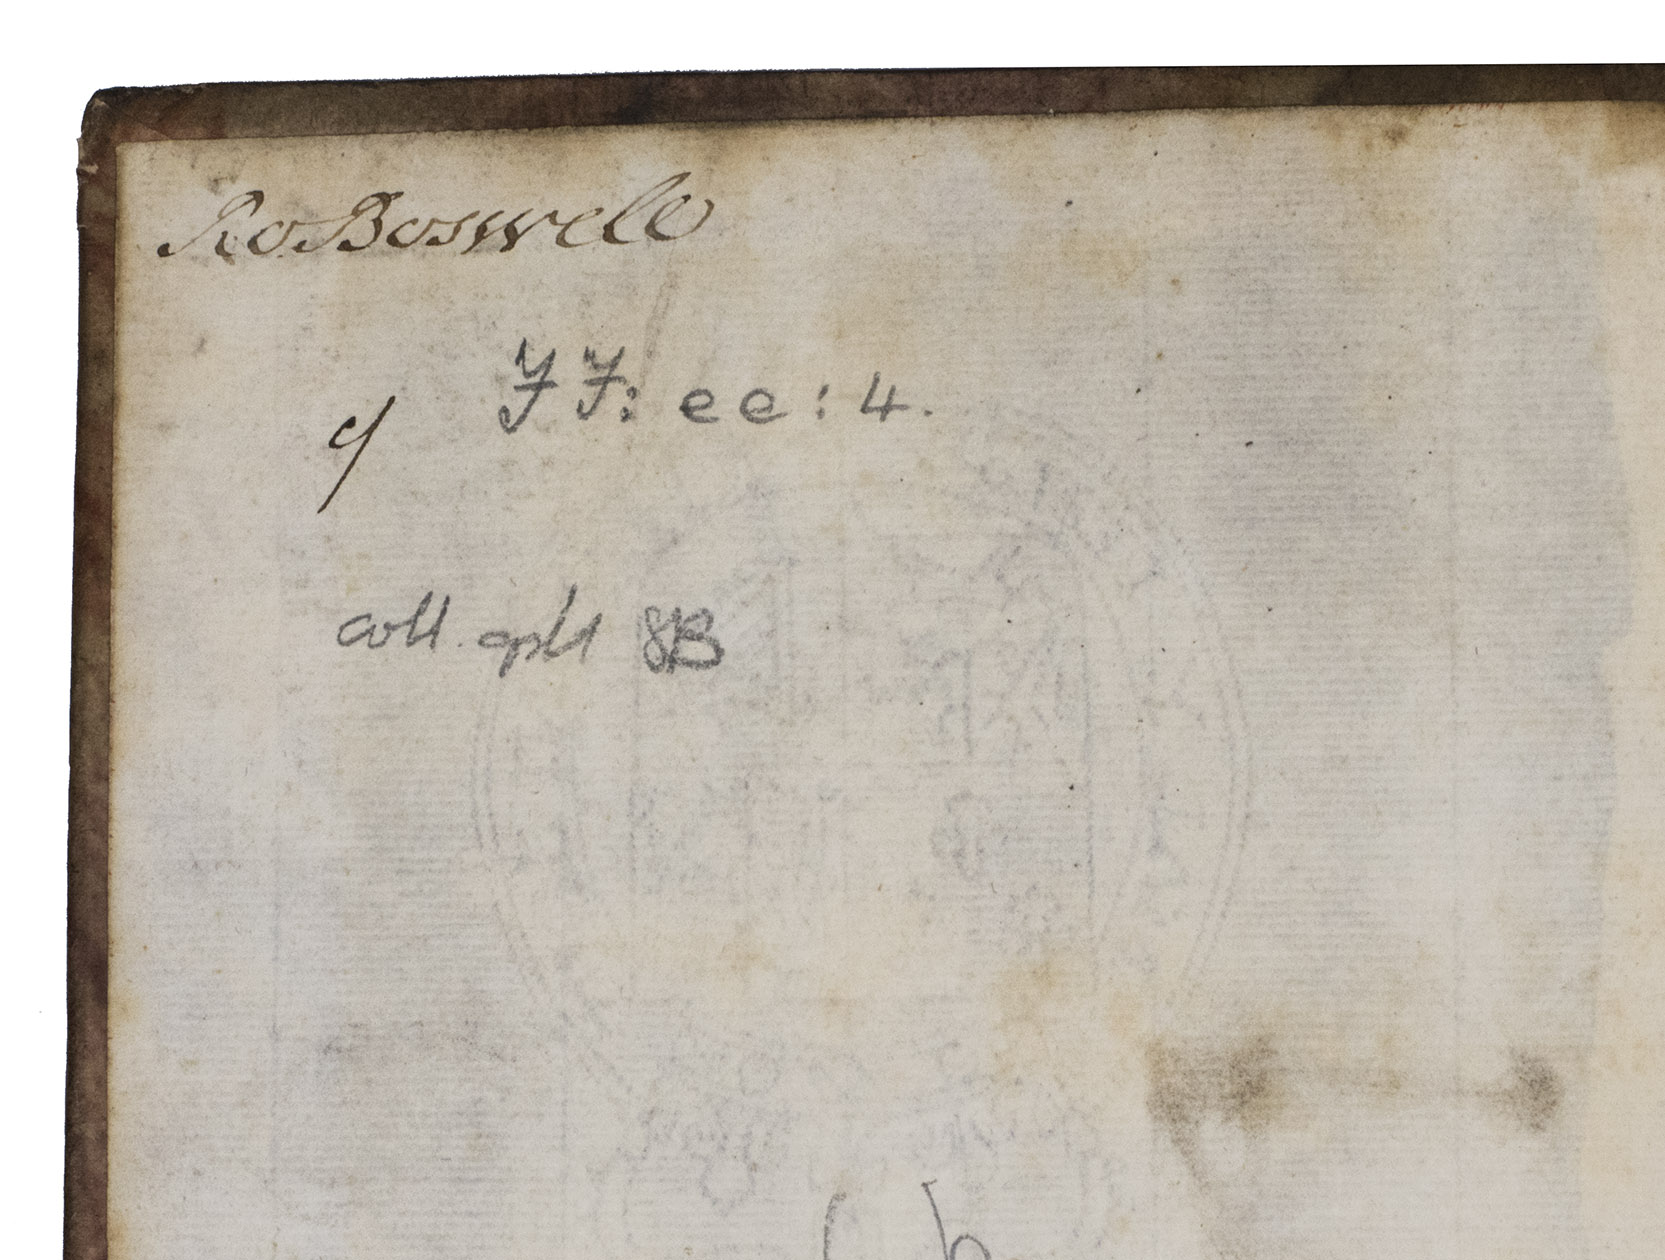 Ro Boswell
JJ: ee: 4.
coll. cplt